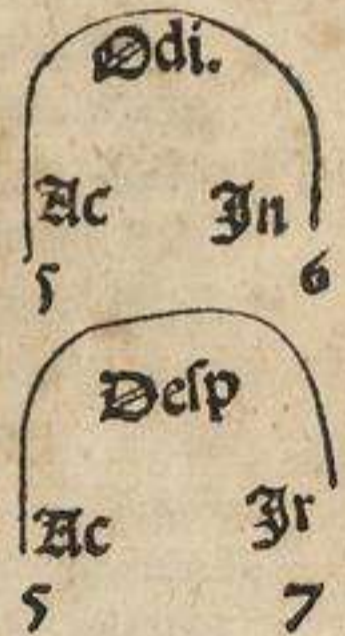 Odi.
Ac In
5 6
Deſp
Ac Ir
5 7